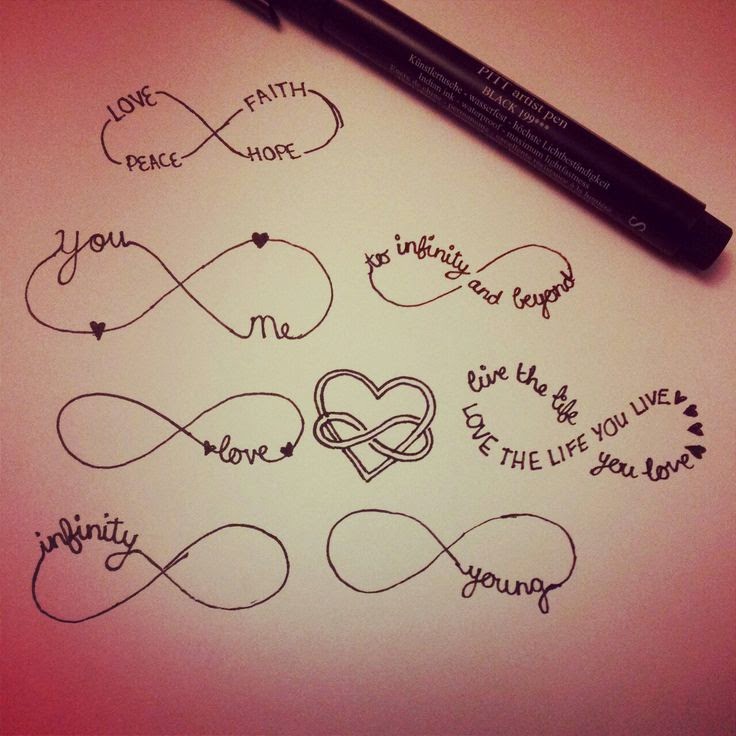 LOVE FAITH
PEACE HOPE
PITT artist pen
BLACK 199***
Künstlertusche - wasserfest - höchste Lichtbeständigkeit
Indian ink - waterproof - maximum lightfastness
S
You
Me
to infinity
and beyond
love
live the life
LOVE THE LIFE YOU LIVE
you love
infinity
young